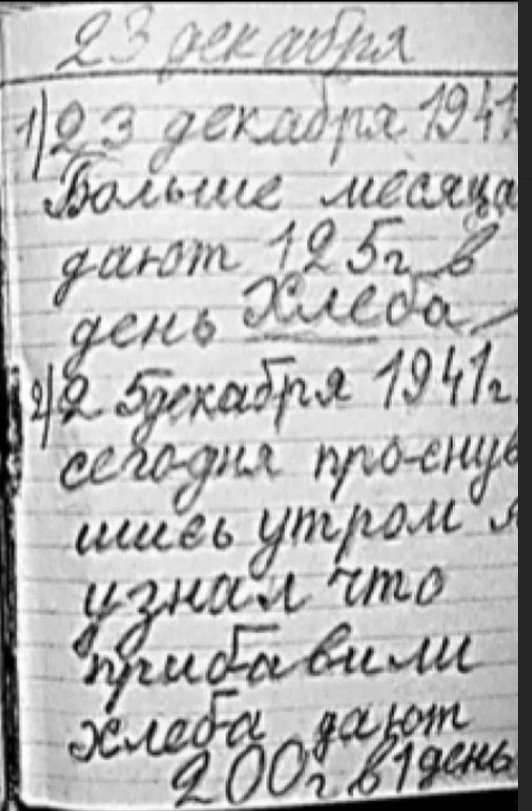 23 декабря
1) 23 декабря 1941
Больше месяца
дают 125г в
день Хлеба
2) 25 декабря 1941г.
сегодня проснув
шись утром я
узнал что
прибавили
хлеба дают
200г в 1 день